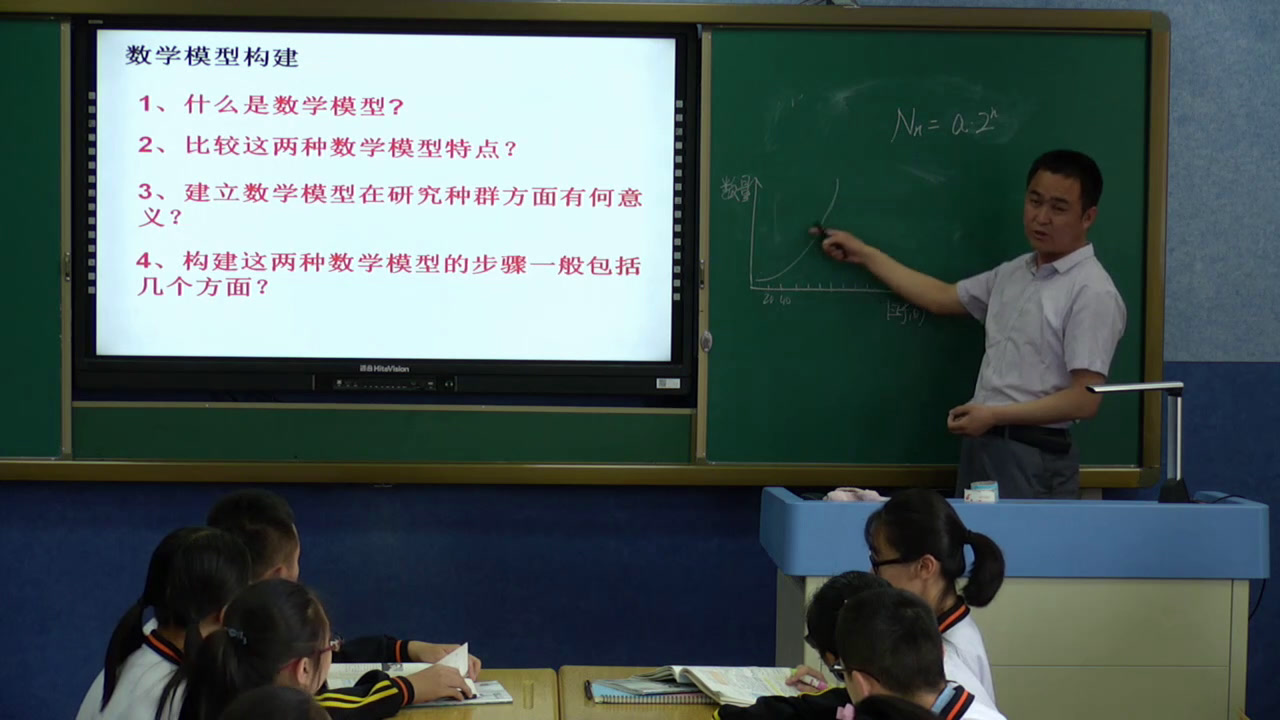 数学模型构建
1、什么是数学模型?
2、比较这两种数学模型特点？
3、建立数学模型在研究种群方面有何意
义？
4、构建这两种数学模型的步骤一般包括
几个方面？
HiteVision
Nn = a·2ⁿ
数量
20 40